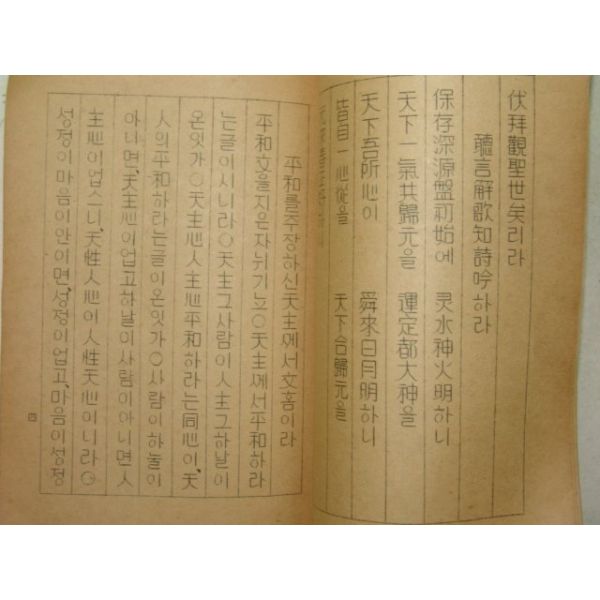 伏拜觀聖世矣리라
聽言解歌知詩吟하라
保存深源盤初始에 灵水神火明하니
天下一氣共歸元을 運定都大神을
天下吾所心이 舜來日月明하니
皆自一心從을 天下合歸元을
平和를주장하신天主께서文홈이라
平和文을지은자뉘기뇨○天主께서平和하라
는글이시니라○天主그사람이人主그하날이
온잇가○天主心人主心平和하라는同心이、天
人의平和하라는글이온잇가○사람이하눌이
아니면、天主心이업고하날이사람이아니면人
主心이업스니、天性人心이人性天心이니라○
성정이마음이안이면、성정이업고、마음이성정
四